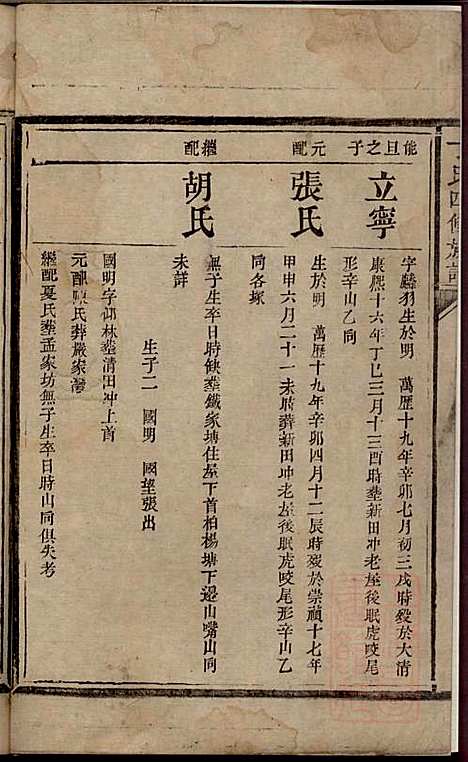 氏四修族譜
能旦之子
立寧
字麟羽生於明　萬歷十九年辛卯七月初三戌時歿於大清
康熙十六年丁巳三月十三酉時塟新田冲老屋後眠虎咬尾
形辛山乙向
元配
張氏
生於明　萬歷十九年辛卯四月十二辰時歿於崇禎十七年
甲申六月二十一未時葬新田冲老屋後眠虎咬尾形辛山乙
向各塚
繼配
胡氏
無子生卒日時缺塟鐵家塘住屋下首柏楊塘下邊山嘴山向
未詳
生子二　國明　國望張出
國明字卲林塟清田冲上首
元配陳氏葬嚴家灣
繼配夏氏塟孟家坊無子生卒日時山向俱失考